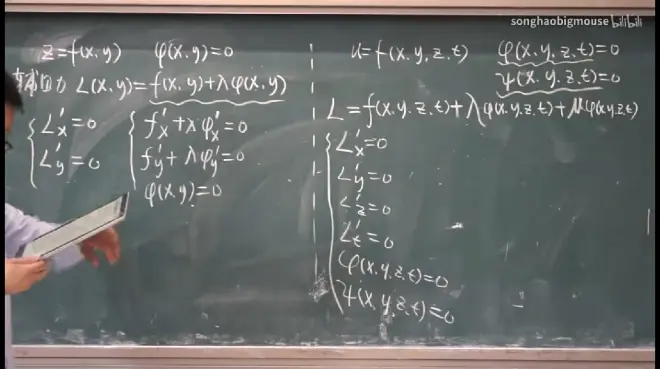 songhaobigmouse bilibili
z=f(x,y) φ(x,y)=0
L(x,y)=f(x,y)+λφ(x,y)
L'x=0
L'y=0
f'x+λφ'x=0
f'y+λφ'y=0
φ(x,y)=0
u=f(x,y,z,t) φ(x,y,z,t)=0
ψ(x,y,z,t)=0
L=f(x,y,z,t)+λφ(x,y,z,t)+μφ(x,y,z,t)
L'x=0
L'y=0
L'z=0
L't=0
φ(x,y,z,t)=0
ψ(x,y,z,t)=0